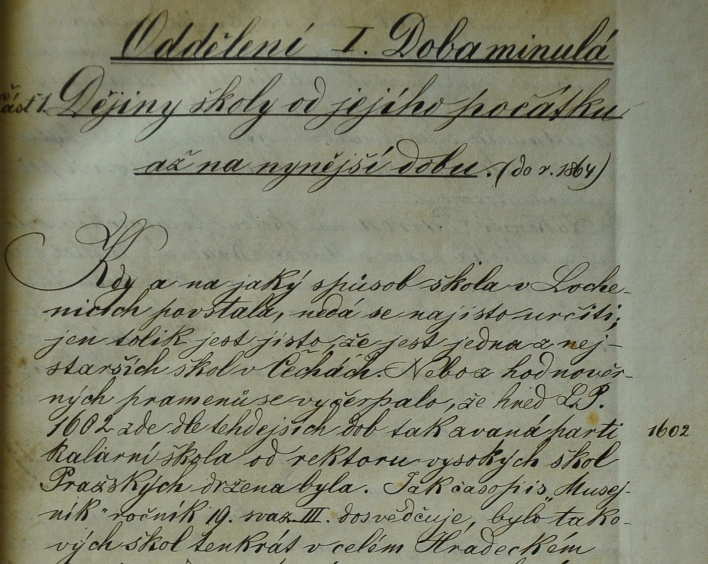 Oddělení I. Doba minulá
část 1. Dějiny školy od jejího počátku
až na nynější dobu. (do r. 1864)
Kdy a na jaký spůsob škola v Loche-
nicích povstala, nedá se najisto určiti;
jen tolik jest jisto, že jest jedna z nej-
starších škol v Čechách. Nebo z hodnověr-
ných pramenů se vyčerpalo, že hned L.P.
1602 zde dle tehdejších dob tak zvaná parti
kulární škola od rektoru vysokých škol
Pražských držena byla. Jak časopis „Musej-
ník" ročník 19. svaz. III. dosvědčuje, bylo tako-
vých škol tenkrát v celém Hradeckém
1602